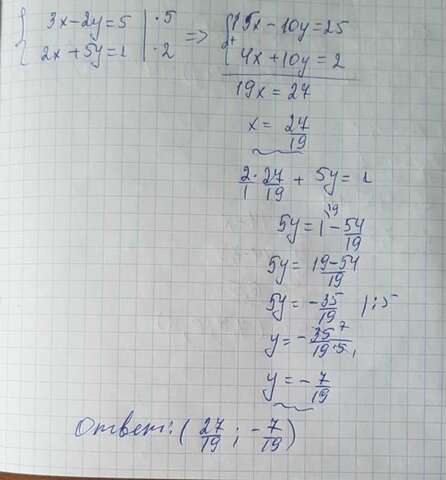 { 3x-2y=5 | ·5 => { 15x-10y=25
{ 2x+5y=1 | ·2 { + 4x+10y=2
19x=27
x= 27/19
2/1 · 27/19 + 5y=1
5y= 1^19 - 54/19
5y= 19-54/19
5y= -35/19 | :5
y= - 35^7/19·5₁
y= - 7/19
Ответ: ( 27/19 ; - 7/19 )